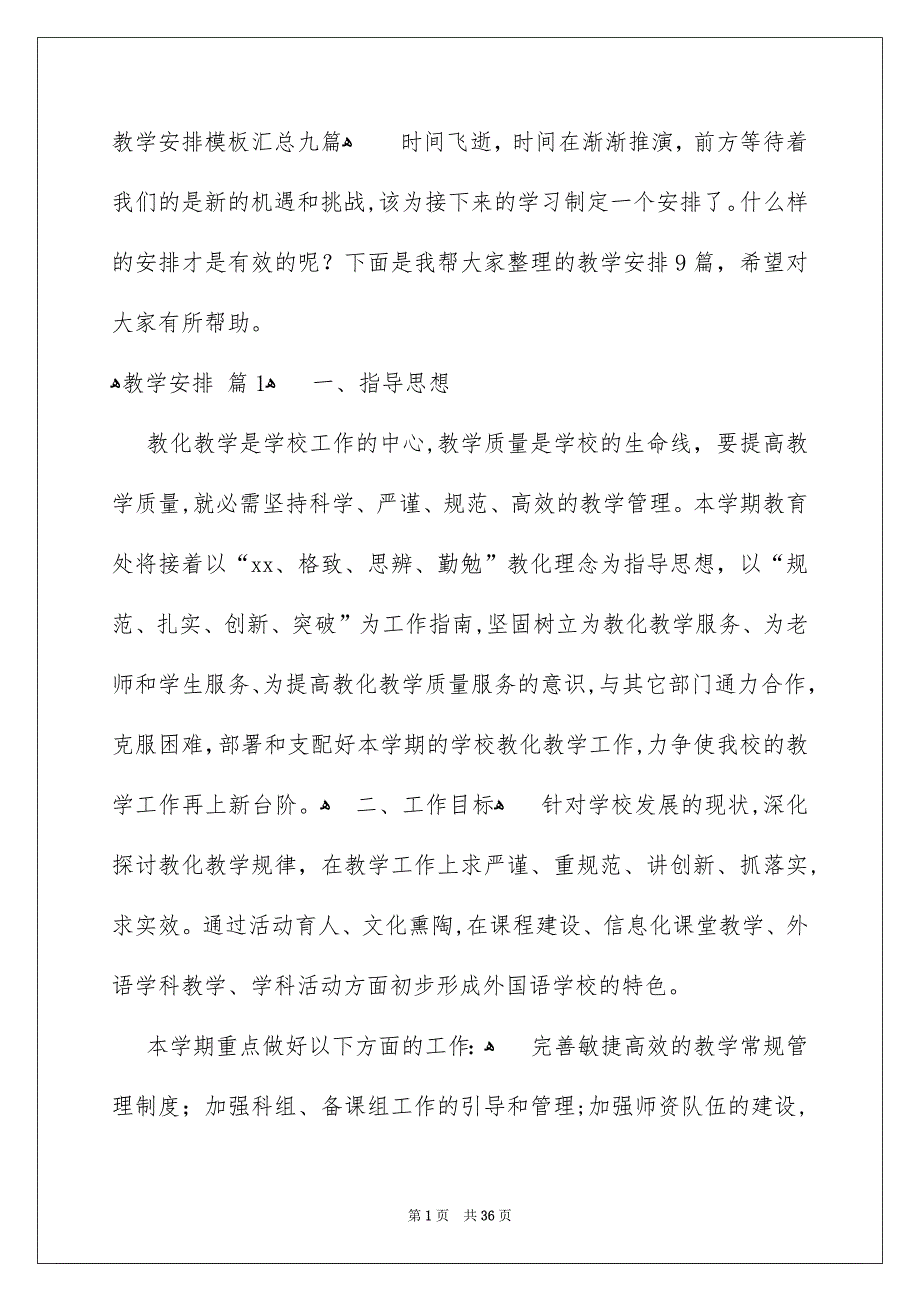 教学安排模板汇总九篇ﻫ　　时间飞逝，时间在渐渐推演，前方等待着
我们的是新的机遇和挑战,该为接下来的学习制定一个安排了。什么样
的安排才是有效的呢？下面是我帮大家整理的教学安排9篇，希望对
大家有所帮助。
ﻫ教学安排 篇1ﻫ　一、指导思想
教化教学是学校工作的中心,教学质量是学校的生命线，要提高教
学质量,就必需坚持科学、严谨、规范、高效的教学管理。本学期教育
处将接着以“xx、格致、思辨、勤勉”教化理念为指导思想，以“规
范、扎实、创新、突破”为工作指南,坚固树立为教化教学服务、为老
师和学生服务、为提高教化教学质量服务的意识,与其它部门通力合作,
克服困难,部署和支配好本学期的学校教化教学工作,力争使我校的教
学工作再上新台阶。ﻫ　二、工作目标ﻫ　　针对学校发展的现状,深化
探讨教化教学规律，在教学工作上求严谨、重规范、讲创新、抓落实,
求实效。通过活动育人、文化熏陶,在课程建设、信息化课堂教学、外
语学科教学、学科活动方面初步形成外国语学校的特色。
本学期重点做好以下方面的工作：ﻫ　　完善敏捷高效的教学常规管
理制度；加强科组、备课组工作的引导和管理;加强师资队伍的建设,
第 1 页　共 36 页